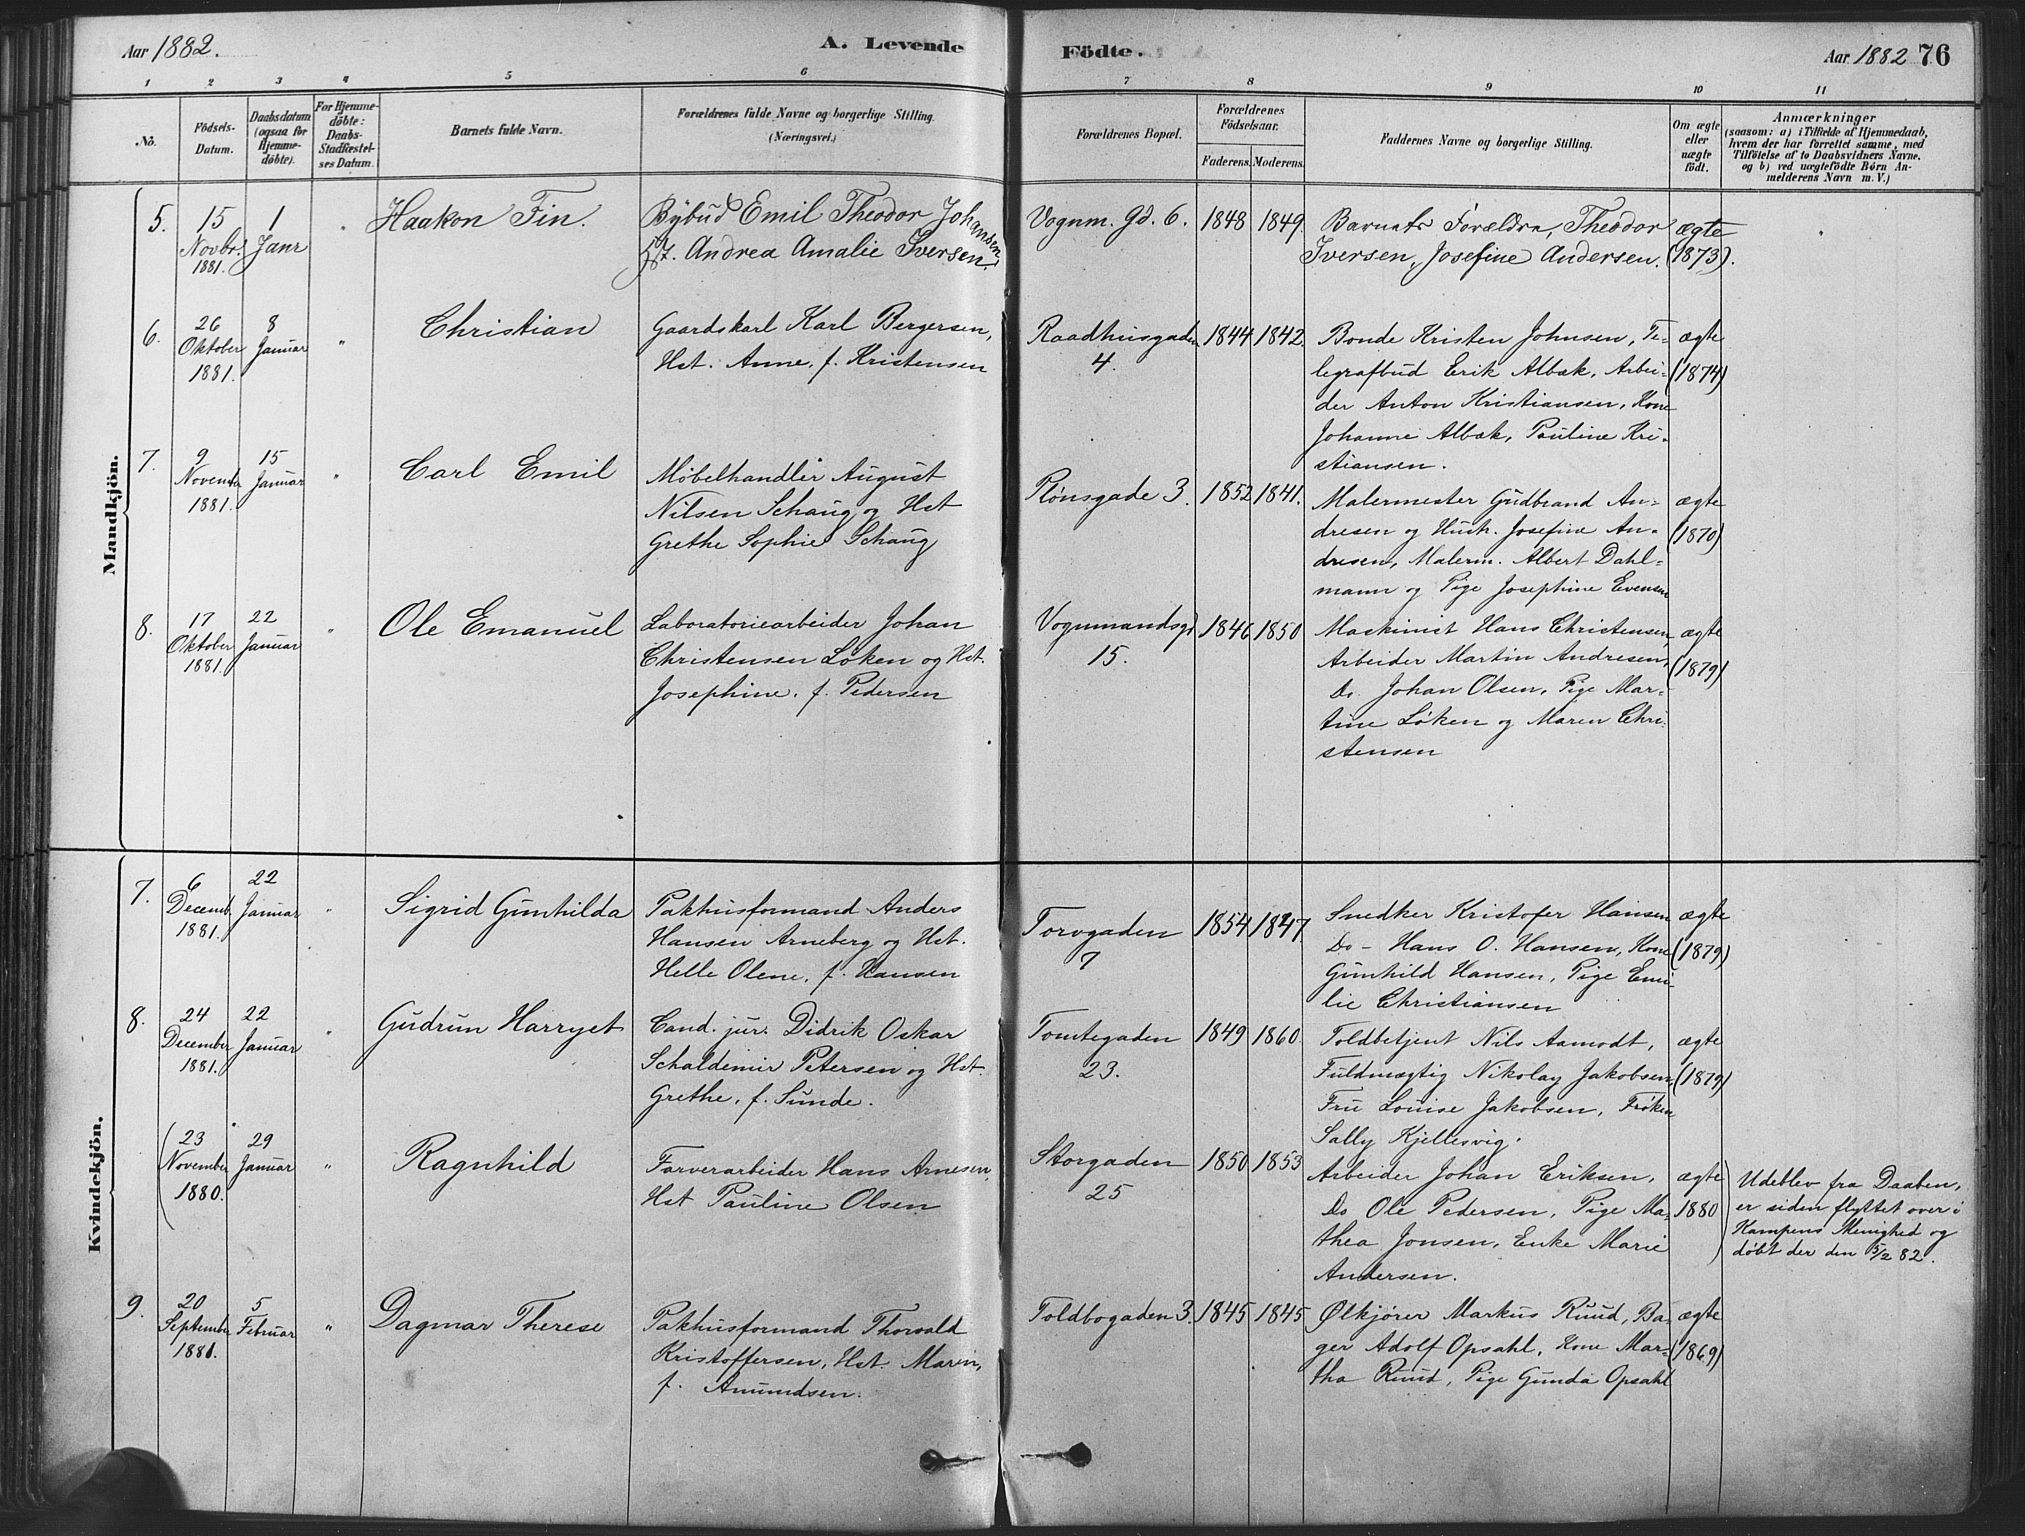 Aar 1882.
A. Levende
Födte.
Aar 1882 76
1 2 3 4 5 6 7 8 9 10 11
No.
Födsels-
Datum.
Daabsdatum
(ogsaa for
Hjemme-
döbte).
For Hjemme-
döbte:
Daabs-
Stadfæstel-
ses Datum.
Barnets fulde Navn.
Forældrenes fulde Navne og borgerlige Stilling.
(Næringsvei.)
Forældrenes Bopæl.
Forældrenes
Födselsaar.
Faderens. Moderens.
Faddernes Navne og borgerlige Stilling.
Om ægte
eller
uægte
födt.
Anmærkninger
(saasom: a) i Tilfælde af Hjemmedaab,
hvem der har forrettet samme, med
Tilföielse af to Daabsvidners Navne.
og b) ved uægtefödte Børn An-
melderens Navn m. V.)
Mandkjön.
5.
15
Novbr.
1881.
1
Janr
"
Haakon Fin.
Bybud Emil Theodor Johansen,
Hst. Andrea Amalie Iversen.
Vognm. Gd. 6.
1848 1849.
Barnets Forældre, Theodor
Iversen, Josefine Andersen.
ægte
(1873).
"
6.
26
Oktober
1881.
8
Januar
"
Christian
Gaardskarl Karl Bergersen,
Hst. Anne, f. Kristensen
Raadhusgaden
4.
1844 1842.
Bonde Kristen Johnsen, Te-
legrafbud Erik Albæk, Arbei-
der Anton Kristiansen, Kone
Johanne Albæk, Pauline Kri-
stiansen.
ægte
(1874)
7.
9
November
1881.
15
Januar
"
Carl Emil
Møbelhandler August
Nilsen Schaug og Hst
Grethe Sophie Schaug
Plønsgade 3.
1852 1841.
Malermester Gudbrand An-
dresen og Hustr. Josefine An-
dresen, Malerm. Albert Dahl-
mann og Pige Josephine Evensen
ægte
(1870)
8.
17
Oktober
1881.
22
Januar
"
Ole Emanuel
Laboratoriearbeider Johan
Christensen Løken og Hst.
Josephine, f. Pedersen
Vognmandsgd
15.
1846 1850
Maskinist Hans Christensen,
Arbeider Martin Andresen,
Do. Johan Olsen, Pige Mar-
tine Løken og Maren Chri-
stensen
ægte
(1879)
Kvindekjön.
7.
6
Decemb.
1881.
22
Januar
"
Sigrid Gunhilda
Pakhusformand Anders
Hansen Arneberg og Hst.
Helle Olene, f. Hansen
Torvgaden
7
1854 1847.
Snedker Kristofer Hansen
Do - Hans O. Hansen, Kone
Gunhild Hansen, Pige Emi-
lie Christiansen
ægte
(1879)
8.
24
December
1881.
22
Januar
"
Gudrun Harryet
Cand. jur. Didrik Oskar
Schaldemir Petersen og Hst.
Grethe, f. Sunde.
Tomtegaden
23.
1849 1860.
Toldbetjent Nils Aamodt,
Fuldmægtig Nikolay Jakobsen,
Fru Louise Jakobsen, Frøken
Sally Kjellesvig.
ægte
(1879)
(23
November
1880.
29
Januar
"
Ragnhild
Farverarbeider Hans Arnesen,
Hst Pauline Olsen
Storgaden
25
1850 1853
Arbeider Johan Eriksen,
Do Ole Pedersen, Pige Ma-
thea Jonsen, Enke Marie
Andersen.
ægte
1880
Udeblev fra Daaben,
er siden flyttet over i
Kampens Menighed og
døbt der den 5/2 82.
9.
20
September
1881.
5
Februar
"
Dagmar Therese
Pakhusformand Thorvald
Kristoffersen, Hst. Marin,
f. Amundsen.
Toldbogaden 3.
1845 1845
Ølkjører Markus Ruud, Ba-
ger Adolf Opsahl, Kone Mar-
tha Ruud, Pige Gunda Opsahl
ægte
(1869)